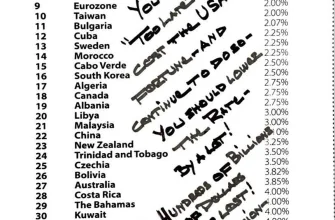 9 Eurozone 2.00%
10 Taiwan
11 Bulgaria
12 Cuba 2.25%
13 Sweden 2.25%
14 Morocco 2.25%
15 Cabo Verde
16 South Korea
17 Algeria 2.75%
18 Canada 2.75%
19 Albania
20 Libya
21 Malaysia
22 China 3.00%
23 New Zealand
24 Trinidad and Tobago
25 Czechia
26 Bolivia
27 Australia 3.85%
28 Costa Rica
29 The Bahamas
30 Kuwait 4.00%
YOU
"TOO LATE"
COST THE USA
FORTUNE - AND
CONTINUE TO DO SO -
YOU SHOULD LOWER
THE RATE -
BY A LOT!
HUNDREDS OF BILLIONS
OF DOLLARS
LOST!